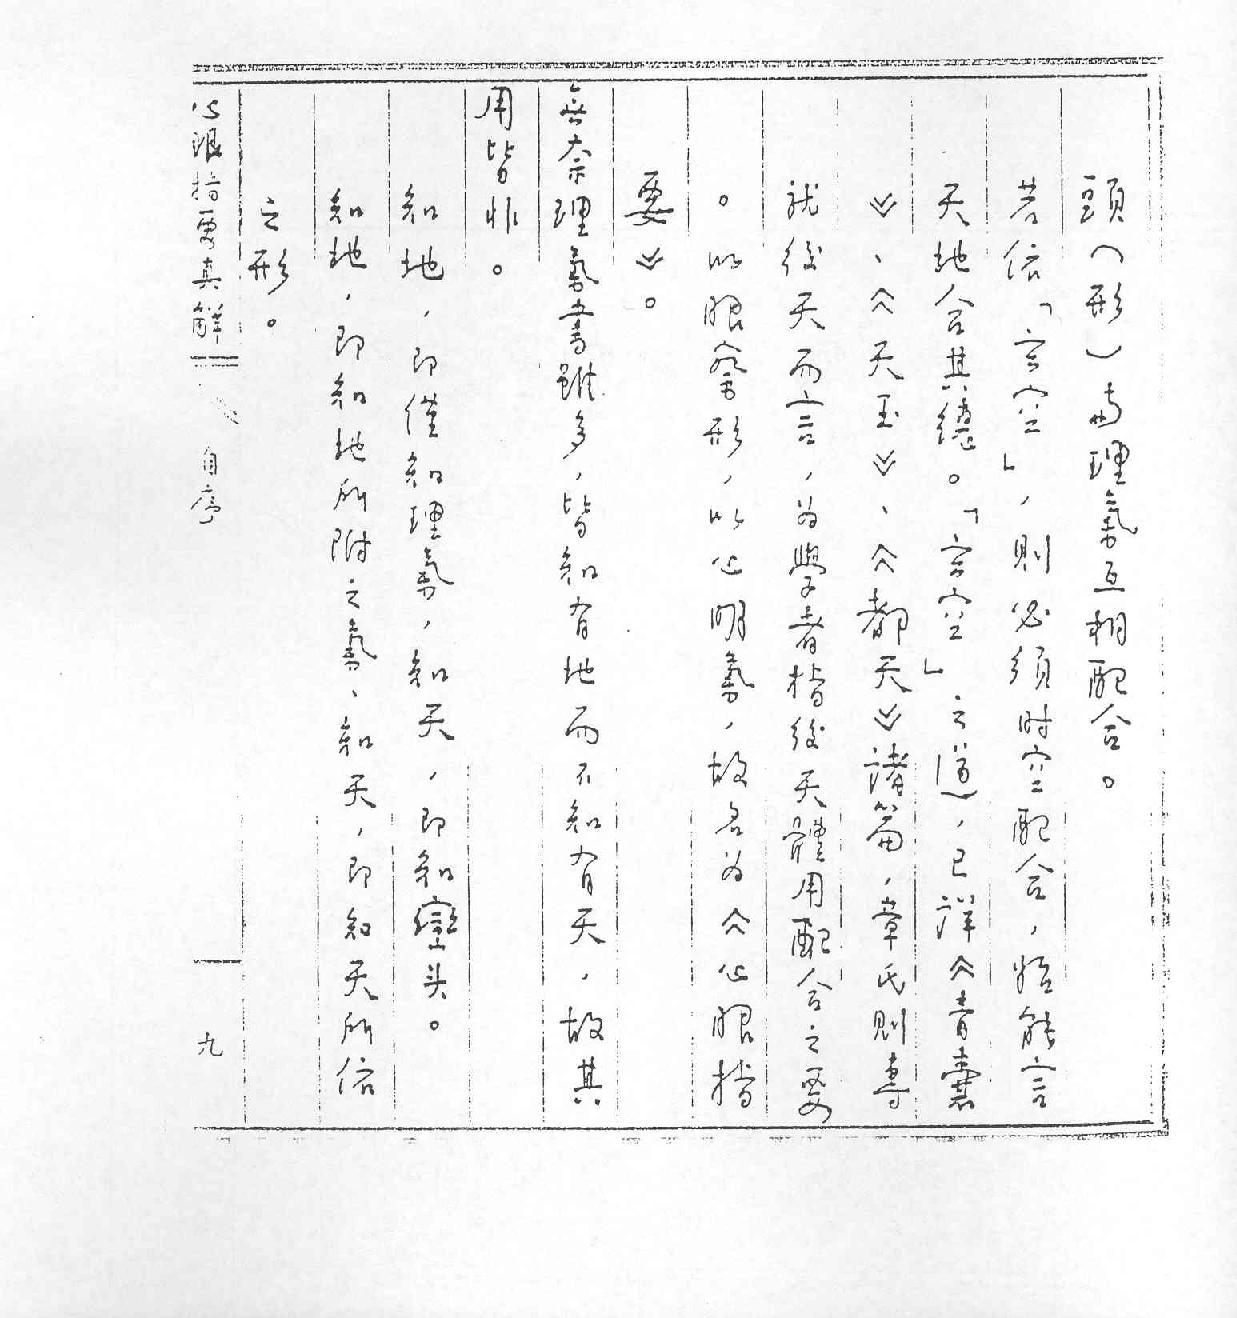 頭（形）与理氣互相配合。
若依「玄空」，則必须时空配合，始能言
天地合其德。「玄空」之道，已詳《青囊
》、《天玉》、《都天》諸篇，章氏則專
就後天而言，為學者指後天體用配合之要
。以眼察形，以心明氣，故名為《心眼指
要》。
無奈理氣書雖多，皆知有地而不知有天，故其
用皆非。
知地，即僅知理氣，知天，即知巒头。
知地，即知地所附之氣、知天，即知天所依
之形。
心眼指要真解 自序 九